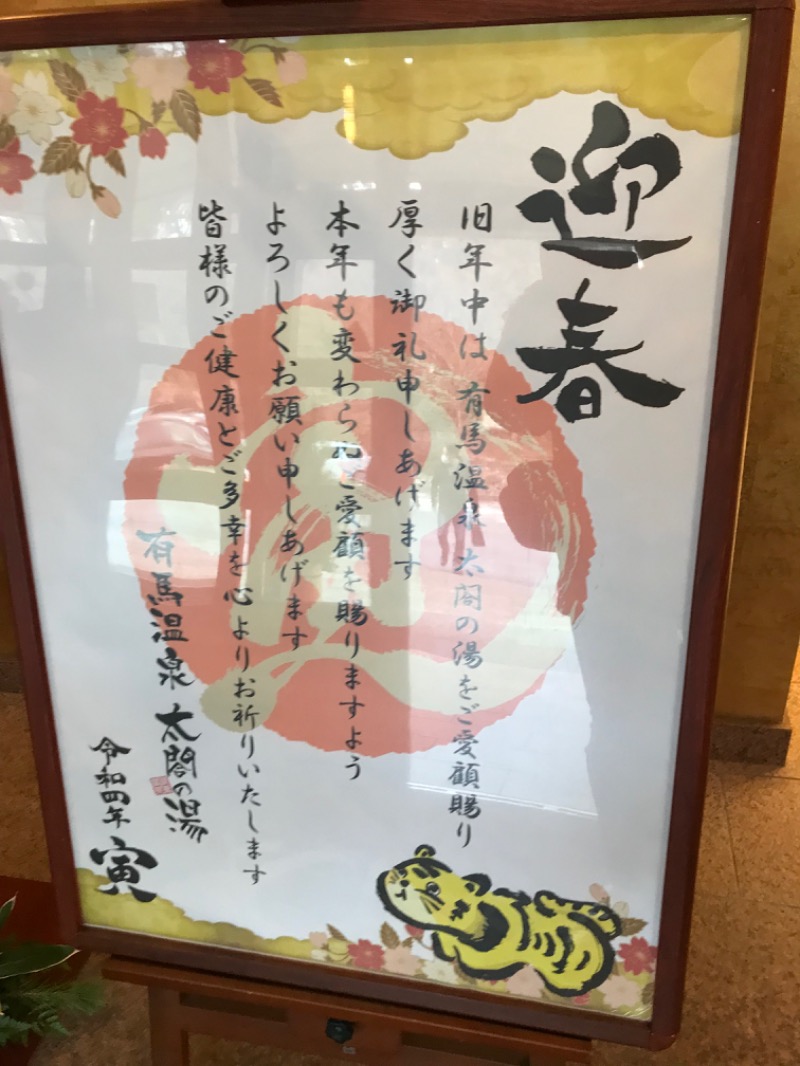 迎春
旧年中は 有馬温泉 太閤の湯をご愛顧賜り
厚く御礼申しあげます
本年も変わらぬご愛顧を賜りますよう
よろしくお願い申しあげます
皆様のご健康とご多幸を心よりお祈りいたします
有馬温泉 太閤の湯
令和四年 寅